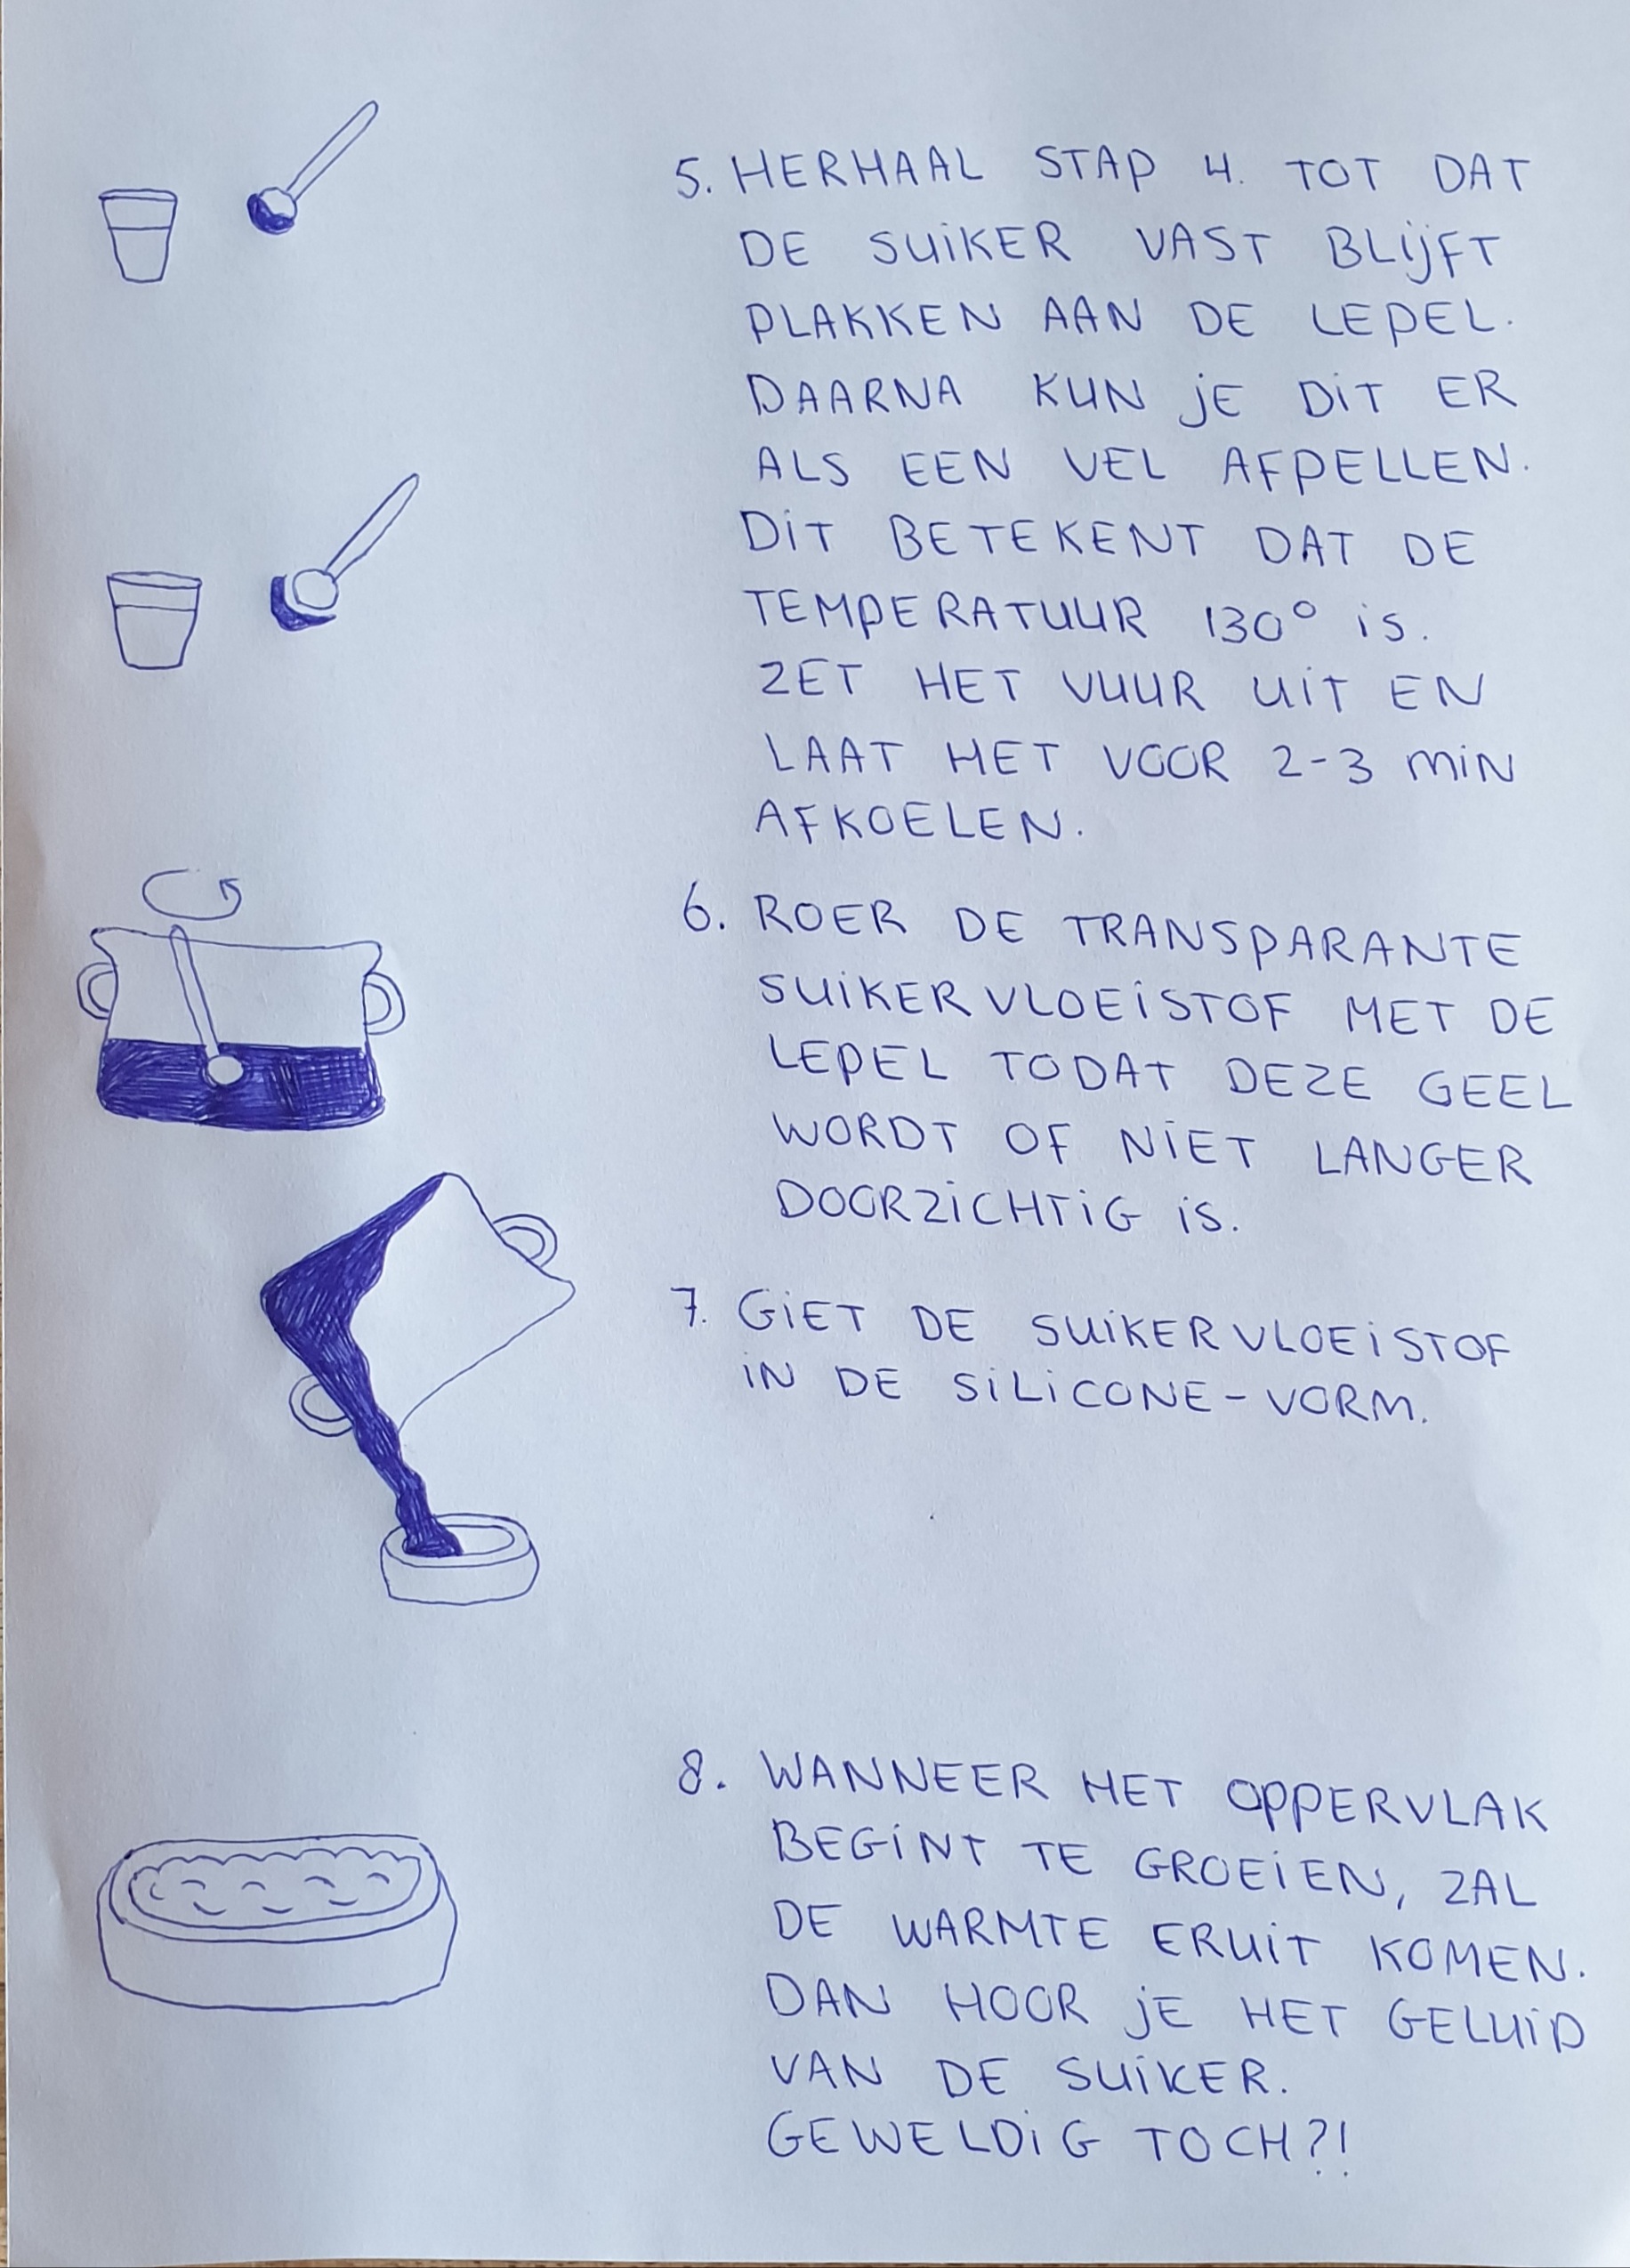 5. HERHAAL STAP 4. TOT DAT
DE SUiKER VAST BLijFT
PLAKKEN AAN DE LEPEL.
DAARNA KUN jE DiT ER
ALS EEN VEL AFPELLEN.
DiT BETEKENT DAT DE
TEMPERATUUR 130° is.
ZET HET VUUR UiT EN
LAAT HET VOOR 2-3 MiN
AFKOELEN.
6. ROER DE TRANSPARANTE
SUiKERVLOEiSTOF MET DE
LEPEL TODAT DEZE GEEL
WORDT OF NiET LANGER
DOORZiCHTiG iS.
7. GiET DE SUiKERVLOEiSTOF
iN DE SiLiCONE-VORM.
8. WANNEER HET OPPERVLAK
BEGiNT TE GROEiEN, ZAL
DE WARMTE ERUiT KOMEN.
DAN HOOR jE HET GELUiD
VAN DE SUiKER.
GEWELDiG TOCH?!